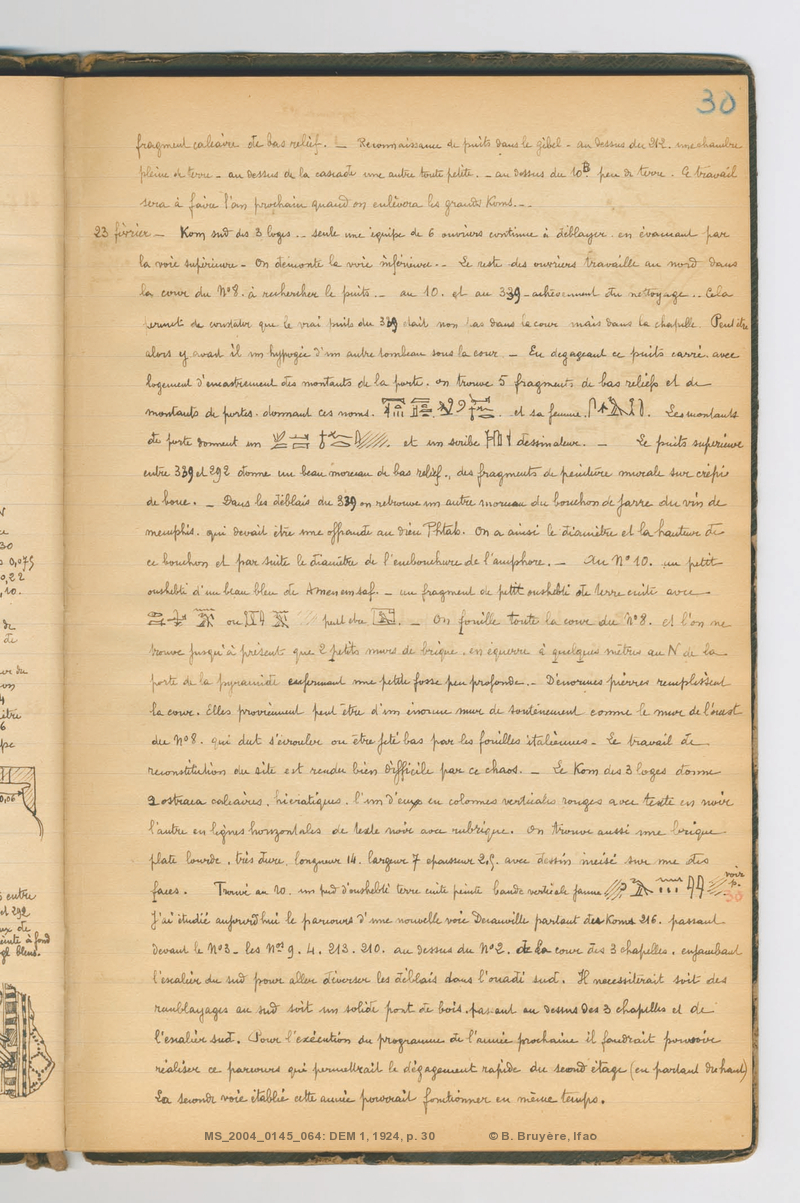 30
fragment calcaire de bas relief. _ Reconnaissance de puits dans le gibel - au dessus du 212. une chambre
pleine de terre - au dessus de la cascade une autre toute petite. - au dessus du 10B peu de terre. Ce travail
sera à faire l'an prochain quand on enlèvera les grands Koms. --
23 février - Kom sud des 3 loges .. seule une équipe de 6 ouvriers continue à déblayer en évacuant par
la voie supérieure - On démonte la voie inférieure. - Le reste des ouvriers travaille au nord dans
la cour du N°8. à rechercher le puits. - au 10. et au 339 - achèvement du nettoyage .. Cela
permet de constater que le vrai puits du 339 était non pas dans la cour mais dans la chapelle. Peut être
alors y avait il un hypogée d'un autre tombeau sous la cour. - En dégageant ce puits carré avec
logement d'encastrement des montants de la porte. on trouve 5 fragments de bas reliefs et de
montants de portes. donnant ces noms. et sa femme. Les montants
de porte donnent un et un scribe dessinateur. - Le puits supérieur
entre 339 et 292 donne un beau morceau de bas relief., des fragments de peinture murale sur crépi
de boue. - Dans les déblais du 339 on retrouve un autre morceau du bouchon de jarre du vin de
memphis. qui devait être une offrande au dieu Phtah. On a ainsi le diamètre et la hauteur de
ce bouchon et par suite le diamètre de l'embouchure de l'amphore. - Au N° 10. un petit
oushebti d'un beau bleu de Amenemsaf. - un fragment de petit oushebti de terre cuite avec
ou peut être . - On fouille toute la cour du N°8. et l'on ne
trouve jusqu'à présent que 2 petits murs de brique. en équerre à quelques mètres au N de la
porte de la pyramide enfermant une petite fosse peu profonde. - D'énormes pierres remplissent
la cour. Elles proviennent peut être d'un énorme mur de soutènement comme le mur de l'ouest
du N°8. qui dut s'écrouler ou être jeté bas par les fouilles italiennes - Le travail de
reconstitution du site est rendu bien difficile par ce chaos. - Le Kom des 3 loges donne
2 ostraca calcaires, hiératiques. l'un d'eux en colonnes verticales rouges avec texte en noir
l'autre en lignes horizontales de texte noir avec rubrique. On trouve aussi une brique
plate lourde, très dure, longueur 14. largeur 7 épaisseur 2,5. avec dessin incisé sur une des
faces. Trouvé au 10. un pied d'oushebti terre cuite peinte bande verticale jaune voir p. 30
J'ai étudié aujourd'hui le parcours d'une nouvelle voie Decauville partant des Koms 216. passant
devant le N°3 - les Nos 9. 4. 213. 210. au dessus du N°2. de la cour des 3 chapelles. enjambant
l'escalier du sud pour aller déverser les déblais dans l'ouadi sud. Il nécessiterait soit des
remblayages au sud soit un solide pont de bois. passant au dessus des 3 chapelles et de
l'escalier sud. Pour l'exécution du programme de l'année prochaine il faudrait pouvoir
réaliser ce parcours qui permettrait le dégagement rapide du second étage (en partant du haut)
La seconde voie établie cette année pourrait fonctionner en même temps.
MS_2004_0145_064: DEM 1, 1924, p. 30 © B. Bruyère, Ifao